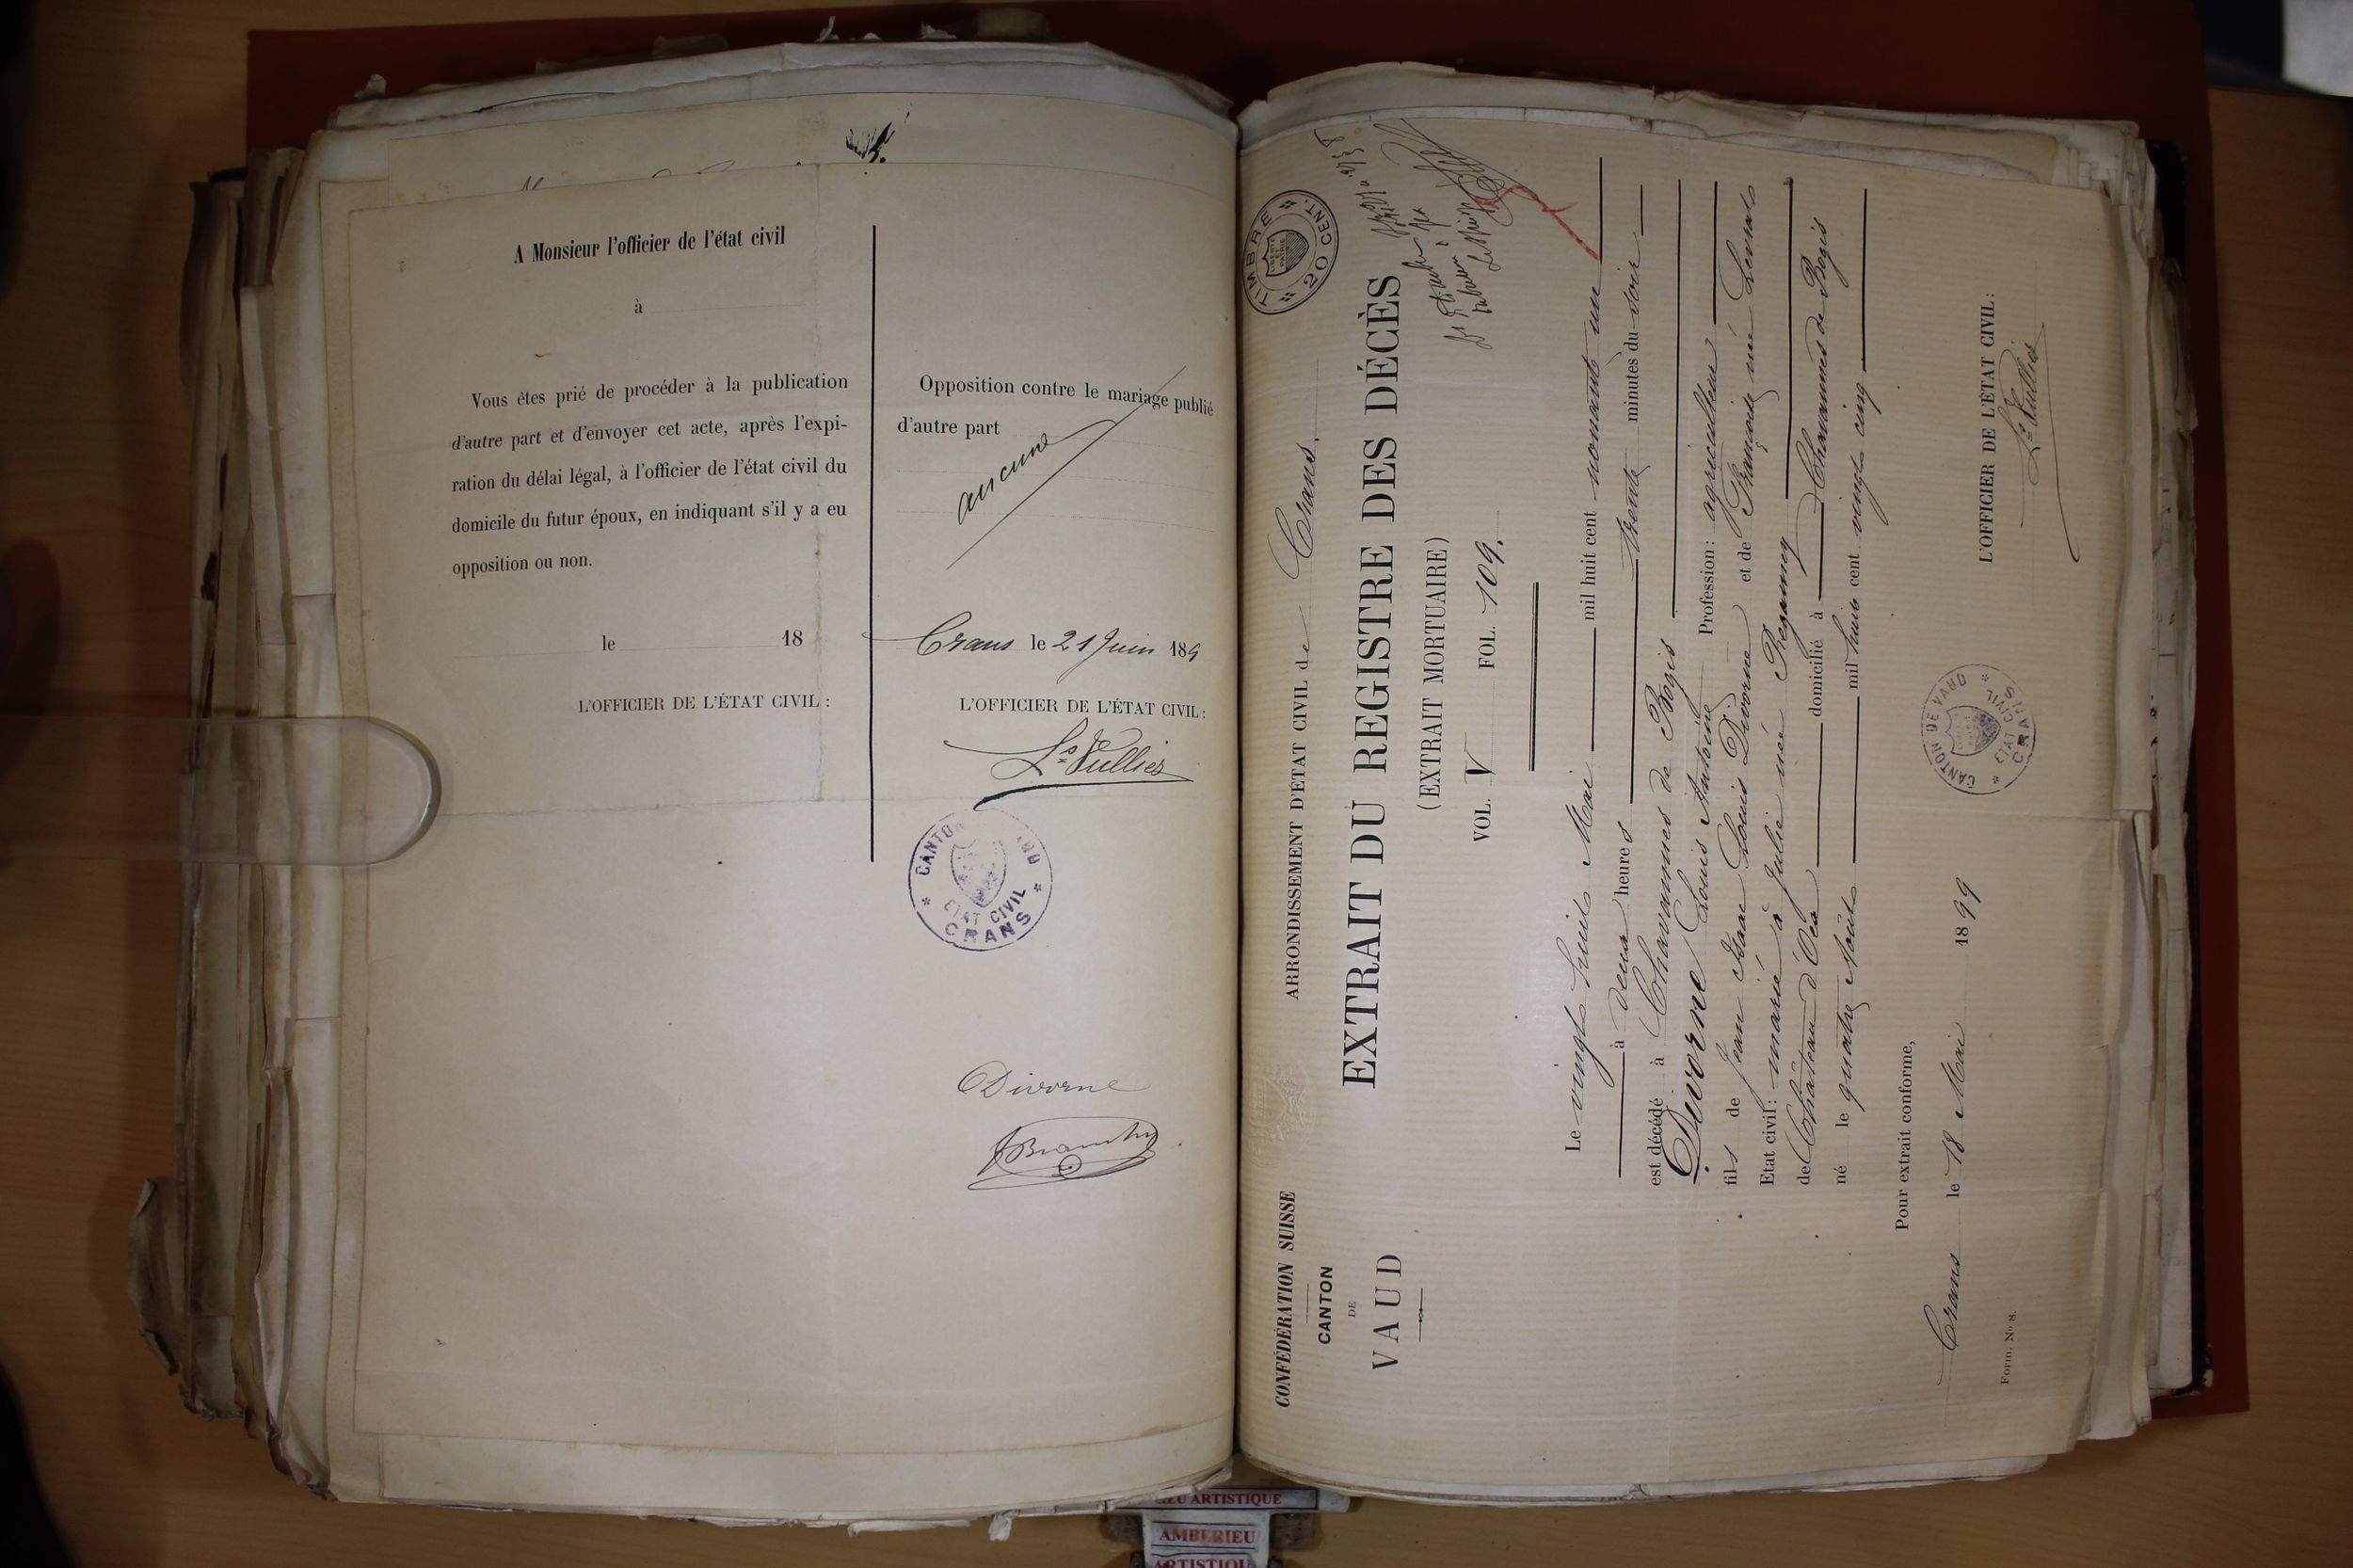 A Monsieur l'officier de l'état civil
à
Vous êtes prié de procéder à la publication
d'autre part et d'envoyer cet acte, après l'expi-
ration du délai légal, à l'officier de l'état civil du
domicile du futur époux, en indiquant s'il y a eu
opposition ou non.
le 18
L'OFFICIER DE L'ÉTAT CIVIL :
Opposition contre le mariage publié
d'autre part
aucune
Crans le 21 Juin 189
L'OFFICIER DE L'ÉTAT CIVIL :
Ls Vullies
CANTON
ÉTAT CIVIL
CRANS
Divorne
CONFÉDÉRATION SUISSE
CANTON
DE
VAUD
ARRONDISSEMENT D'ÉTAT CIVIL de Crans.
TIMBRE
LIBERTÉ ET PATRIE
20 CENT.
EXTRAIT DU REGISTRE DES DÉCÈS
(EXTRAIT MORTUAIRE)
VOL. V FOL. 109.
Le vingt huit Mai mil huit cent nonante un
à deux heures trente minutes du soir
est décédé à Chavannes de Bogis
Divorne Louis Antoine Profession: agriculteur
fils de Jean Isaac Louis Divorne et de Françoise née
Etat civil: marié à Julie née Regamey
de Château d'Oex domicilié à Chavannes de Bogis
né le quatre Août mil huit cent vingt cinq
Pour extrait conforme,
Crans le 18 Mai 1899
L'OFFICIER DE L'ÉTAT CIVIL :
Ls Vullies
CANTON DE VAUD
ÉTAT CIVIL
CRANS
Form. No 8.
LIEU ARTISTIQUE
AMBERIEU
ARTISTIQUE